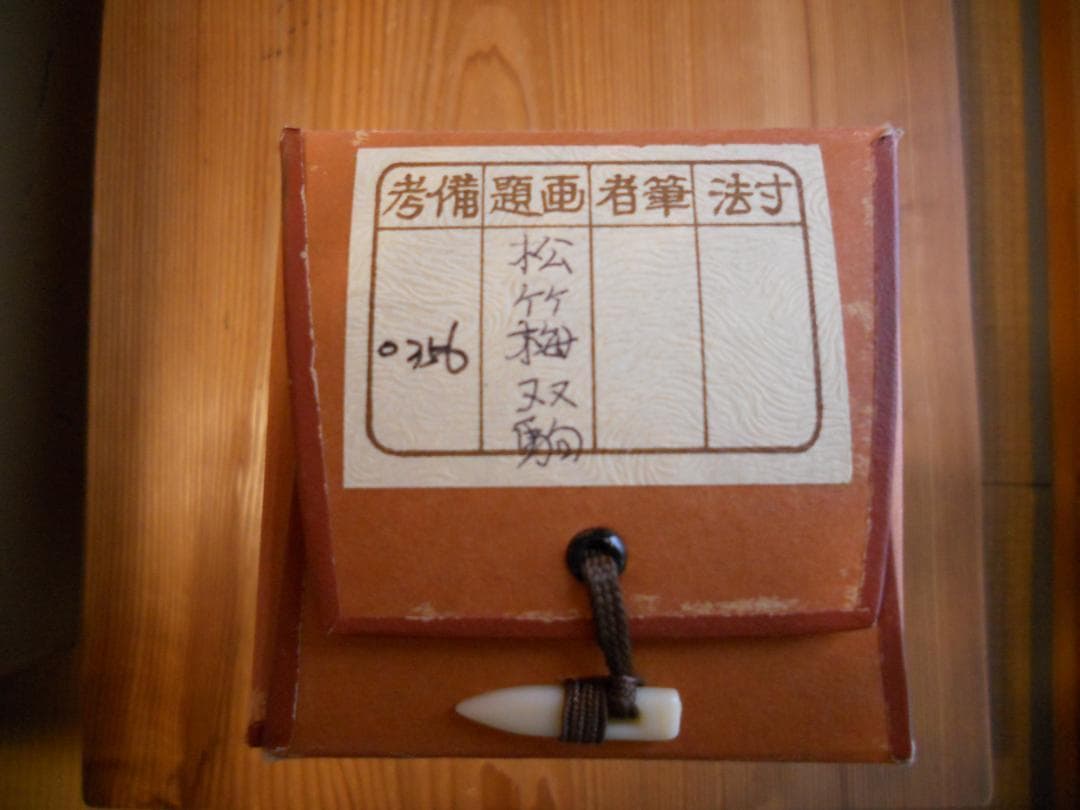 寸法
筆者
画題
松竹梅双駒
備考
0356